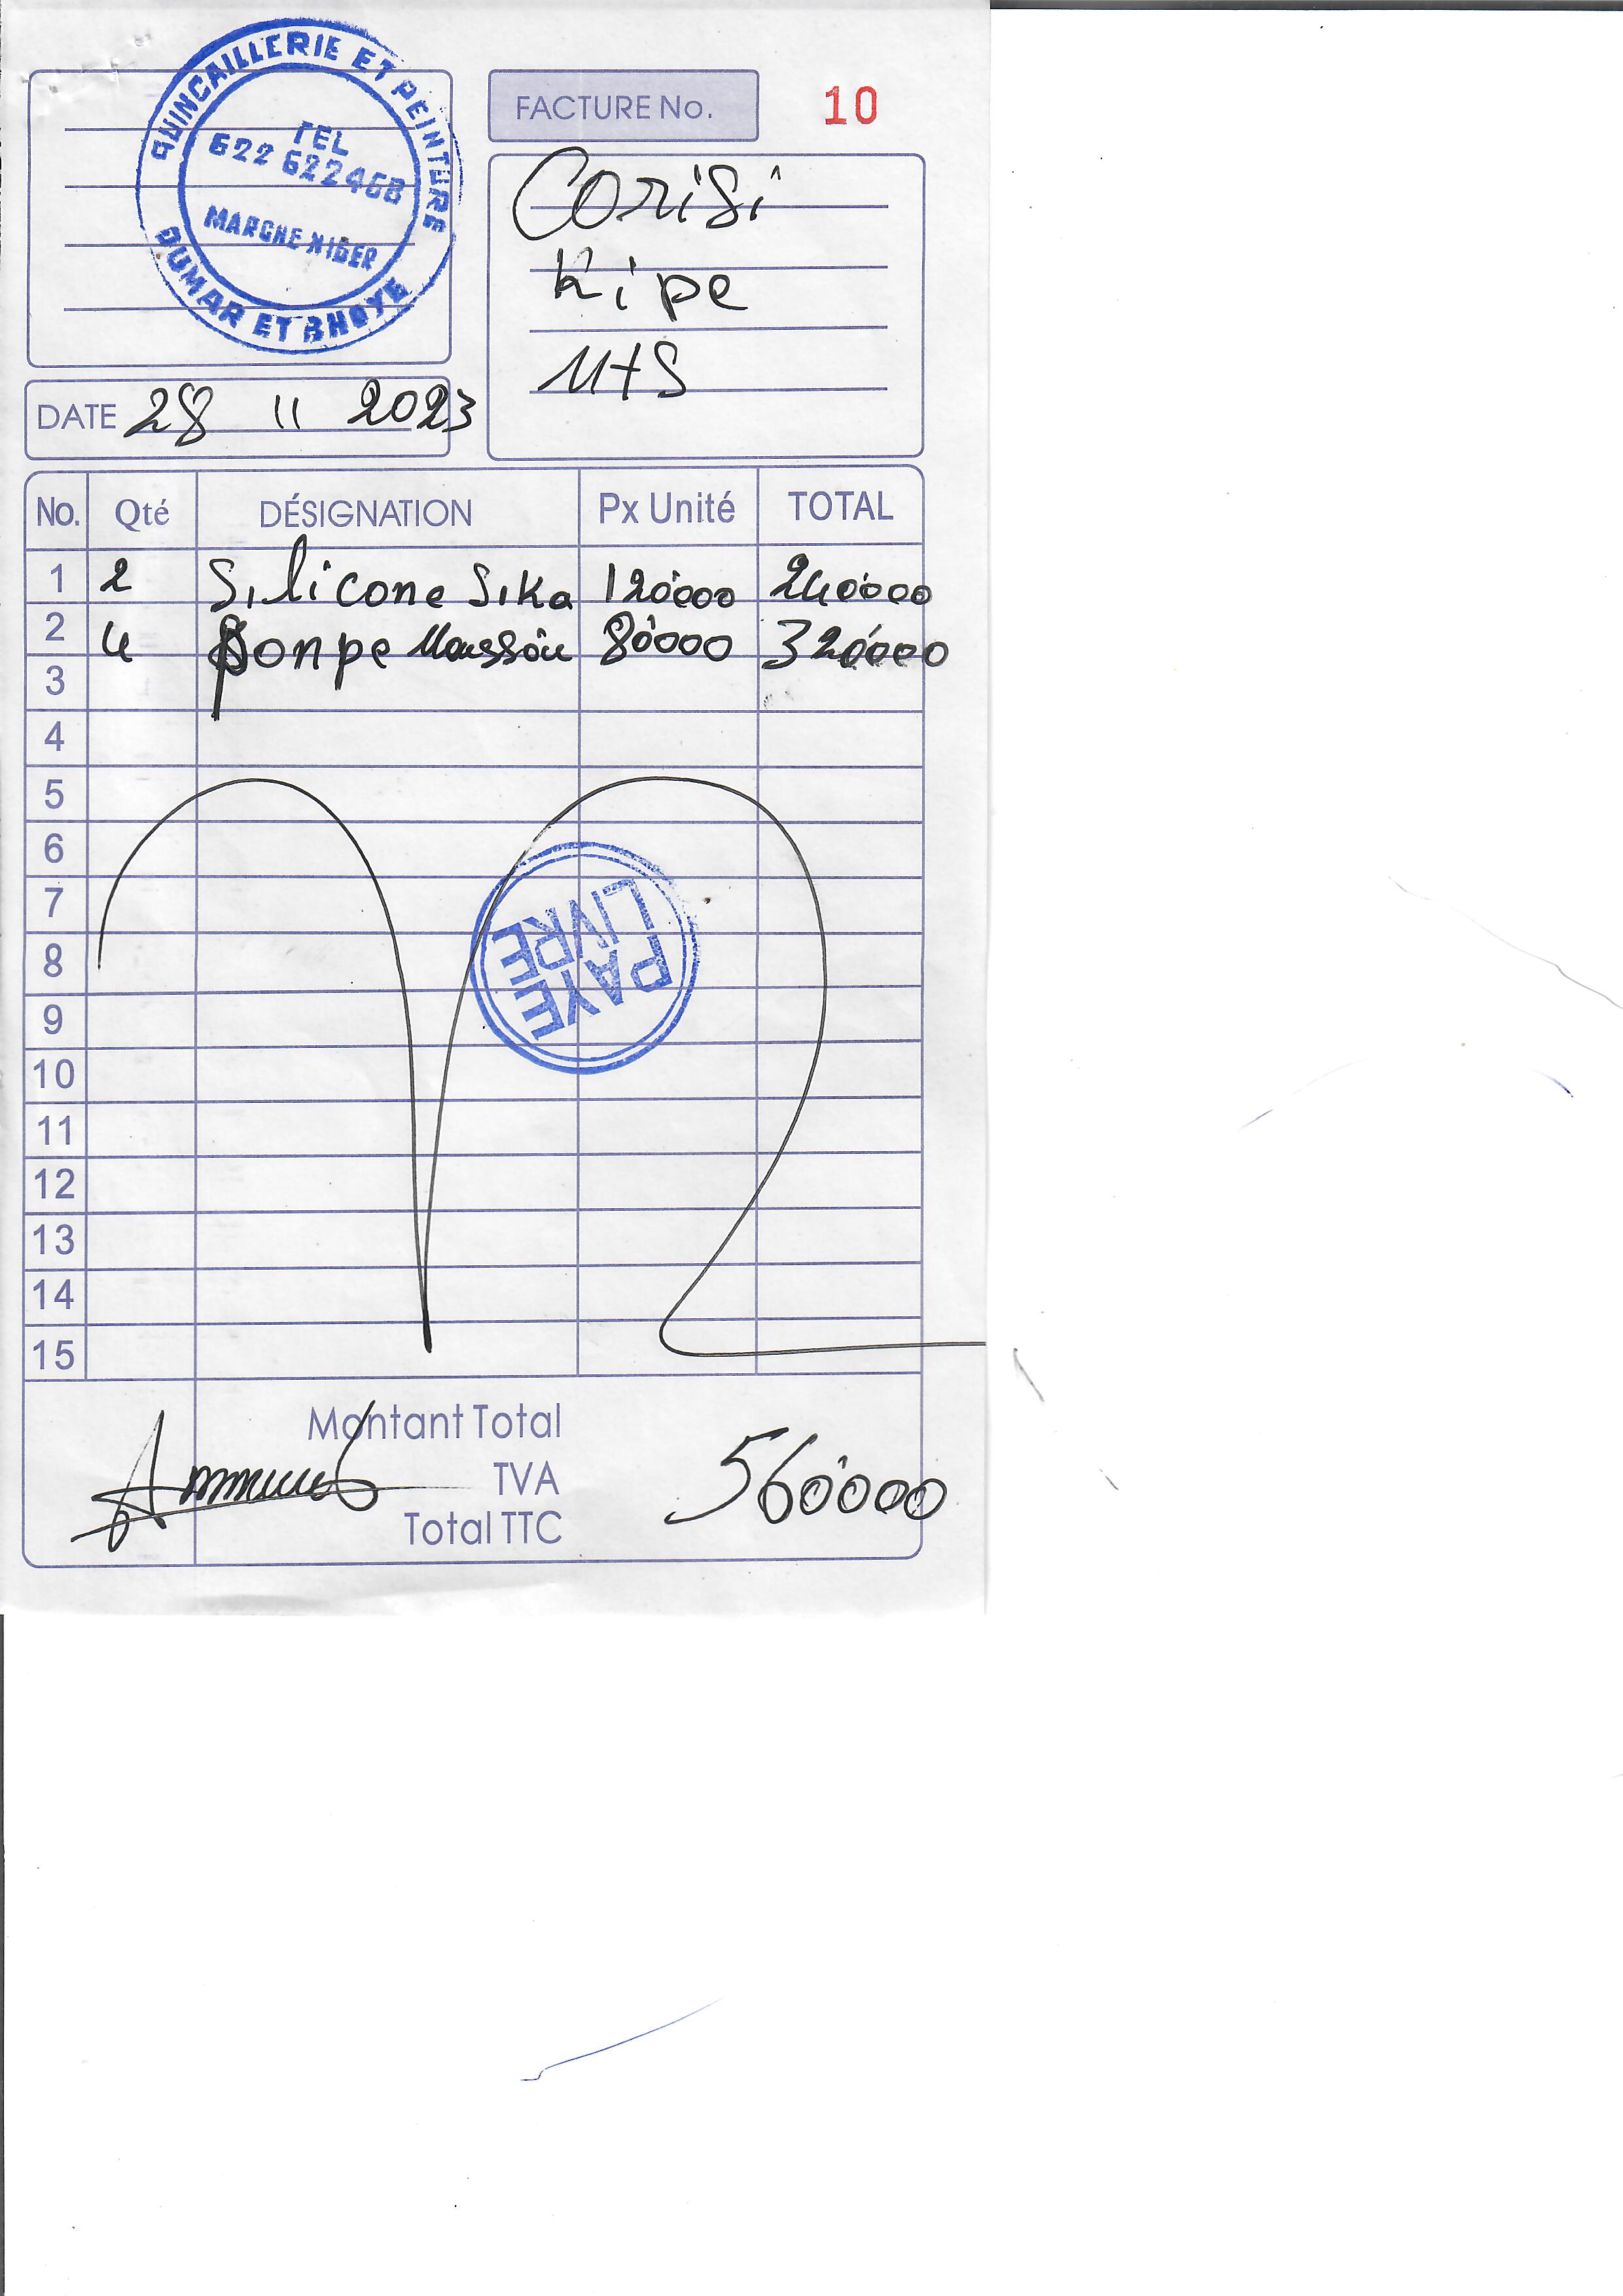 QUINCAILLERIE ET PEINTURE
TEL
622 622468
MARCHE NIGER
OUMAR ET BHOYE
FACTURE No. 10
Corisi
Kipe
M+S
DATE 28 11 2023
No. Qté DÉSIGNATION Px Unité TOTAL
1 2 Silicone Sika 120'000 240'000
2 4 Ponpe 80'000 320'000
3
4
5
6
7
8
PAYE
LIVRE
9
10
11
12
13
14
15
Montant Total
TVA 560'000
Total TTC